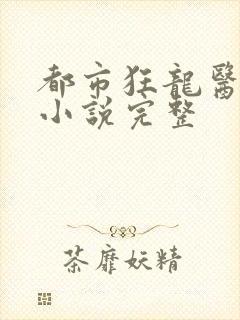 都市狂龍醫
小說完整
茶靡妖精